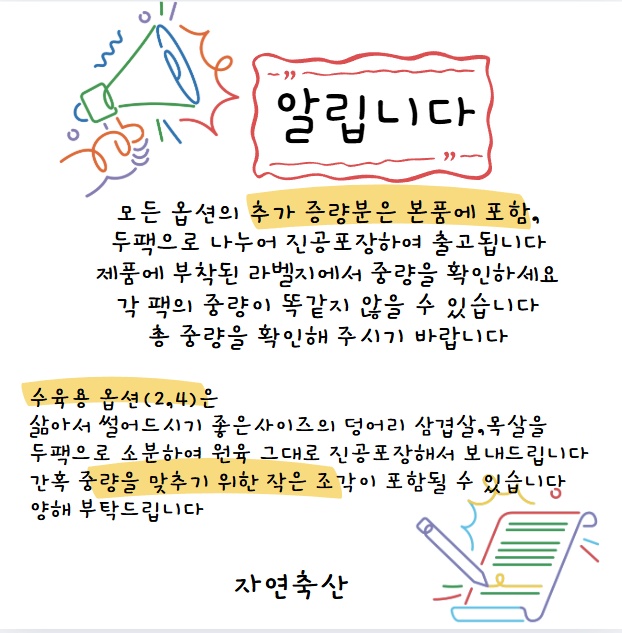 알립니다
모든 옵션의 추가 증량분은 본품에 포함,
두팩으로 나누어 진공포장하여 출고됩니다
제품에 부착된 라벨지에서 중량을 확인하세요
각 팩의 중량이 똑같지 않을 수 있습니다
총 중량을 확인해 주시기 바랍니다
수육용 옵션(2,4)은
삶아서 썰어드시기 좋은사이즈의 덩어리 삼겹살,목살을
두팩으로 소분하여 원육 그대로 진공포장해서 보내드립니다
간혹 중량을 맞추기 위한 작은 조각이 포함될 수 있습니다
양해 부탁드립니다
자연축산